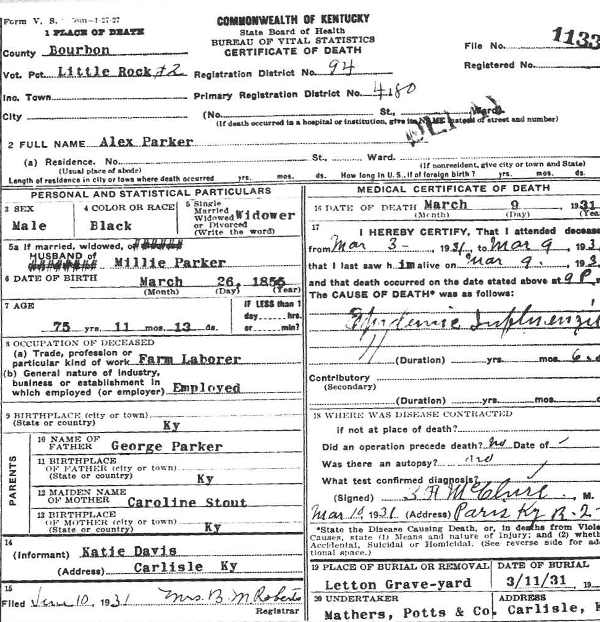 Form V. S. 1-27-27
COMMONWEALTH OF KENTUCKY
State Board of Health
BUREAU OF VITAL STATISTICS
CERTIFICATE OF DEATH
File No. 1133
Registered No.
1 PLACE OF DEATH
County Bourbon
Vot. Pct. Little Rock #2 Registration District No. 94
Inc. Town Primary Registration District No. 4180
City (No. St., Ward)
(If death occurred in a hospital or institution, give its NAME instead of street and number)
2 FULL NAME Alex Parker
(a) Residence. No. St., Ward.
(Usual place of abode) (If nonresident, give city or town and State)
Length of residence in city or town where death occurred yrs. mos. ds. How long in U. S., if of foreign birth? yrs. mos. ds.
PERSONAL AND STATISTICAL PARTICULARS
3 SEX Male
4 COLOR OR RACE Black
5 Single Married Widowed or Divorced (Write the word) Widower
5a If married, widowed, or
HUSBAND of Millie Parker
6 DATE OF BIRTH March 26, 1855
(Month) (Day) (Year)
7 AGE 75 yrs. 11 mos. 13 ds.
IF LESS than 1 day hrs. or min?
8 OCCUPATION OF DECEASED
(a) Trade, profession or particular kind of work Farm Laborer
(b) General nature of industry, business or establishment in which employed (or employer) Employed
9 BIRTHPLACE (city or town)
(State or country) Ky
PARENTS
10 NAME OF FATHER George Parker
11 BIRTHPLACE OF FATHER (city or town)
(State or country) Ky
12 MAIDEN NAME OF MOTHER Caroline Stout
13 BIRTHPLACE OF MOTHER (city or town)
(State or country) Ky
14
(Informant) Katie Davis
(Address) Carlisle Ky
15
Filed 10, 1931 Mrs. B. M Roberts
Registrar
MEDICAL CERTIFICATE OF DEATH
16 DATE OF DEATH March 9 1931
(Month) (Day) (Year)
17 I HEREBY CERTIFY, That I attended deceased
from Mar 3- 1931, to Mar 9, 193
that I last saw him alive on Mar 9. 193
and that death occurred on the date stated above at 9 P. m
The CAUSE OF DEATH* was as follows:
Epidemic
(Duration) yrs. mos. ds
Contributory
(Secondary)
(Duration) yrs. mos. ds
18 WHERE WAS DISEASE CONTRACTED
if not at place of death?
Did an operation precede death? no Date of
Was there an autopsy? no
What test confirmed diagnosis?
(Signed) M.
Mar 10, 1931 (Address) Paris Ky R-2-
*State the Disease Causing Death, or, in deaths from Viole
Causes, state (1) Means and nature of Injury; and (2) whethe
Accidental, Suicidal or Homicidal. (See reverse side for add
tional space.)
19 PLACE OF BURIAL OR REMOVAL Letton Grave-yard
DATE OF BURIAL 3/11/31
20 UNDERTAKER
Mathers, Potts & Co. Carlisle, K